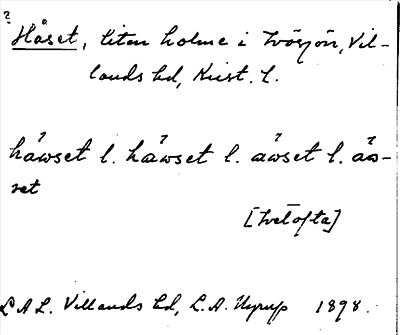 ? Håset, liten holme i Ivösjön, Vil-
lands hd, Krist. l.
håwset l. håwset l. åwset l. ås-
set
[Ivetofta]
L.A.L. Villands hd, L.A. Nyrup 1898.